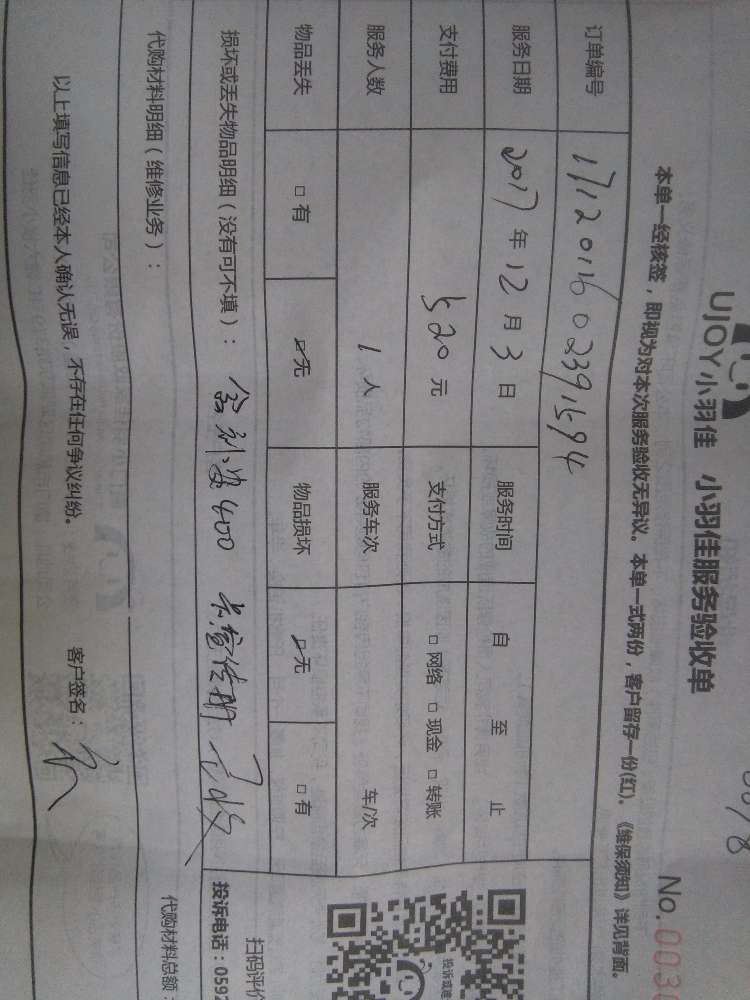 UJOY小羽佳 小羽佳服务验收单
No.003
本单一经核签，即视为对本次服务验收无异议。本单一式两份，客户留存一份(红)。《维保须知》详见背面。
订单编号 1712011602391594
服务日期 2017年12月3日 服务时间 自 至 止
支付费用 520元 支付方式 □网络 □现金 □转账
服务人数 1人 服务车次 车/次
物品丢失 □有 ☑无 物品损坏 ☑无 □有
损坏或丢失物品明细（没有可不填）： 400
代购材料明细（维修业务）：
以上填写信息已经本人确认无误，不存在任何争议纠纷。 客户签名：
投诉或建
扫码评价
投诉电话：0592
代购材料总额：